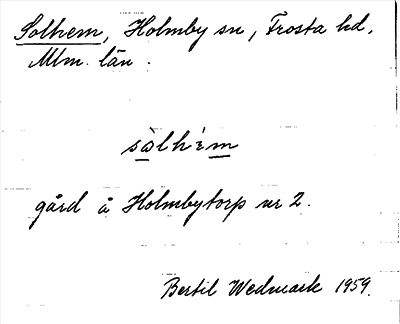 Solhem, Holmby sn, Frosta hd,
Mlm. län.
sòlhém
gård å Holmbytorp nr 2.
Bertil Wedmark 1959.